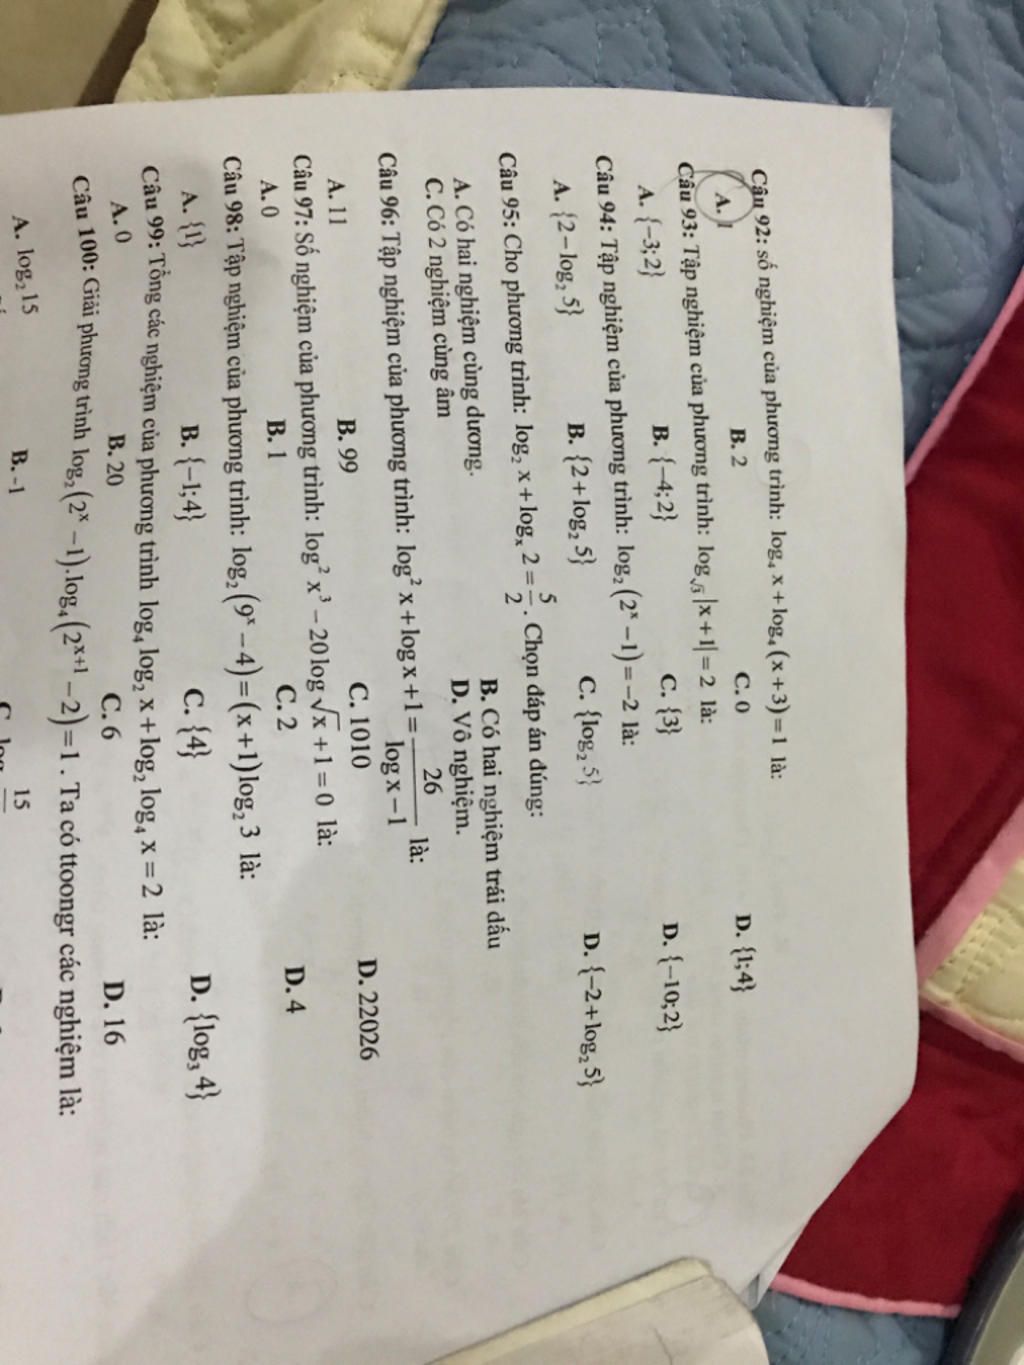 Câu 92: số nghiệm của phương trình: log₄ x + log₄ (x + 3) = 1 là:
A. 1 B. 2 C. 0 D. {1; 4}
Câu 93: Tập nghiệm của phương trình: log_√3 |x + 1| = 2 là:
A. {−3; 2} B. {−4; 2} C. {3} D. {−10; 2}
Câu 94: Tập nghiệm của phương trình: log₂ (2ˣ − 1) = −2 là:
A. {2 − log₂ 5} B. {2 + log₂ 5} C. {log₂ 5} D. {−2 + log₂ 5}
Câu 95: Cho phương trình: log₂ x + logₓ 2 = 5/2. Chọn đáp án đúng:
A. Có hai nghiệm cùng dương. B. Có hai nghiệm trái dấu
C. Có 2 nghiệm cùng âm D. Vô nghiệm.
Câu 96: Tập nghiệm của phương trình: log² x + log x + 1 = 26/(log x − 1) là:
A. 11 B. 99 C. 1010 D. 22026
Câu 97: Số nghiệm của phương trình: log² x³ − 20 log √x + 1 = 0 là:
A. 0 B. 1 C. 2 D. 4
Câu 98: Tập nghiệm của phương trình: log₂ (9ˣ − 4) = (x + 1) log₂ 3 là:
A. {1} B. {−1; 4} C. {4} D. {log₃ 4}
Câu 99: Tổng các nghiệm của phương trình log₄ log₂ x + log₂ log₄ x = 2 là:
A. 0 B. 20 C. 6 D. 16
Câu 100: Giải phương trình log₂ (2ˣ − 1).log₄ (2ˣ⁺¹ − 2) = 1. Ta có ttoongr các nghiệm là:
A. log₂ 15 B. -1 15